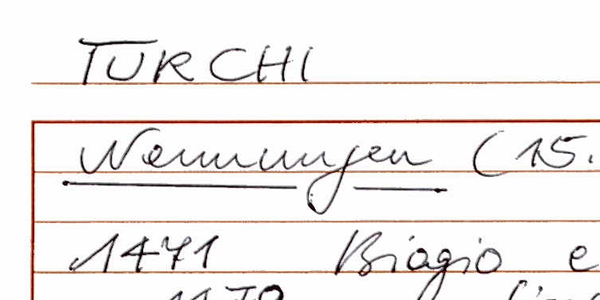 TURCHI
Nennungen (15.
1471 Biagio e